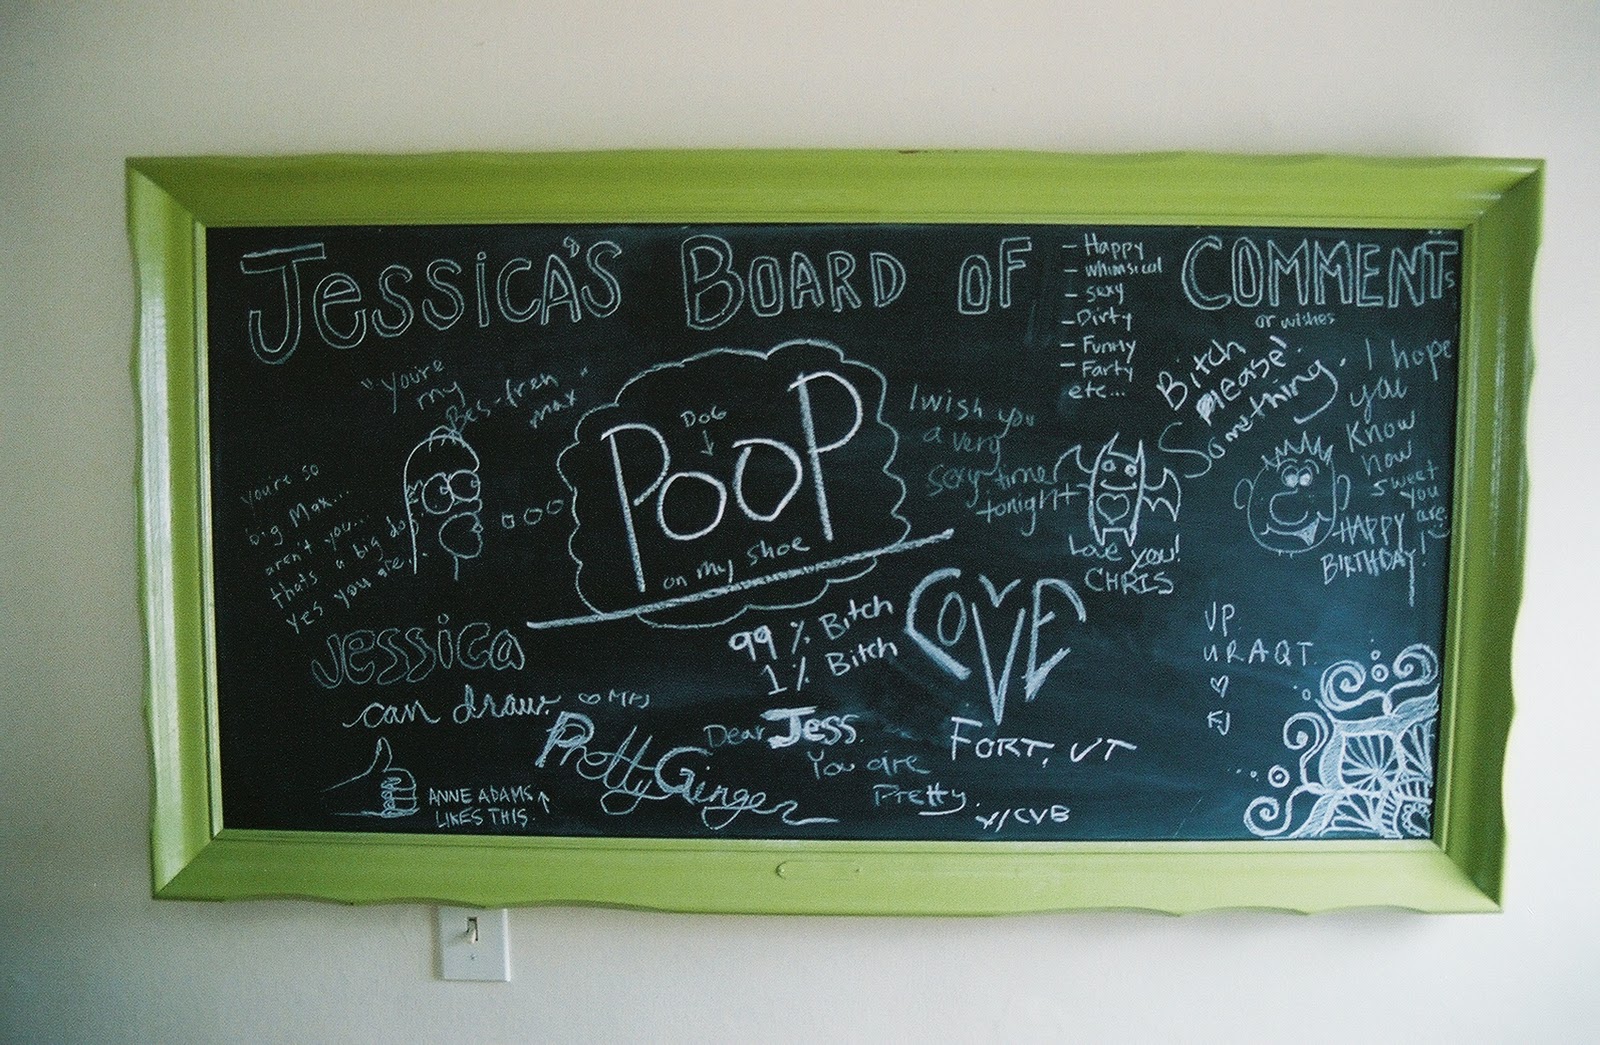 Jessica's Board of
- Happy
- whimsical
- sexy
- Dirty
- Funny
- Farty
etc...
COMMENTs
or wishes
"you're
my
Bes-fren"
max
you're so
big Max...
aren't you...
thats a big do
Yes you are.
DOG
PooP
on my shoe
I wish you
a very
sexy time
tonight
Love you!
CHRIS
Bitch
please!
Something.
I hope
you
Know
how
sweet
you
are
HAPPY
BIRTHDAY!
Jessica
can draw.
ANNE ADAMS
LIKES THIS.
Pretty Ginger
99% Bitch
1% Bitch
LOVE
FORT, UT
Dear Jess
You are
Pretty.
y/CVB
UP
U R A Q T.
FJ